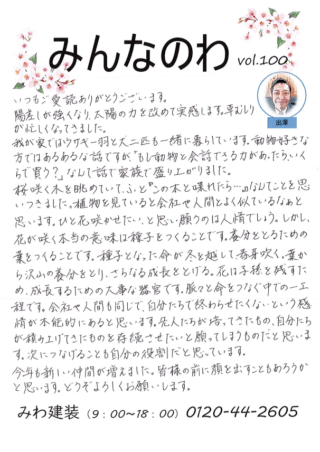 みんなのわ vol.100
出澤
いつもご愛読ありがとうございます。
陽差しが強くなり、太陽の力を改めて実感します。草むしり
が忙しくなってきました。
我が家ではウサギ一羽と犬二匹も一緒に暮らしています。動物好きな
方ではあるあるな話ですが"もし動物と会話できる力があったら、いく
らで買う？"なんて話で家族で盛り上がりました。
桜咲く木を眺めていて、ふと"この木と喋れたら…"なんてことを思
いつきました。植物を見ていると会社や人間とよく似ているなぁと
思います。ひと花咲かせたい、と思い願うのは人情でしょう。しかし、
花が咲く本当の意味は種子をつくることです。養分をとるための
葉をつくることです。種子となった命が冬を越して春芽吹く。葉か
ら沢山の養分をとり、さらなる成長をとげる。花は子孫を残すた
め、成長するための大事な器官です。脈々と命をつなぐ中での一工
程です。会社や人間も同じで、自分たちで終わらせたくないという感
情が本能的にあると思います。先人たちが培ってきたもの、自分たち
が積み上げてきたものを存続させたいと願ってしまうものだと思いま
す。次につなげることも自分の役割だと思っています。
今年も新しい仲間が増えました。皆様の前に顔を出すこともあろうか
と思います。どうぞよろしくお願いします。
みわ建装（9：00〜18：00）0120-44-2605